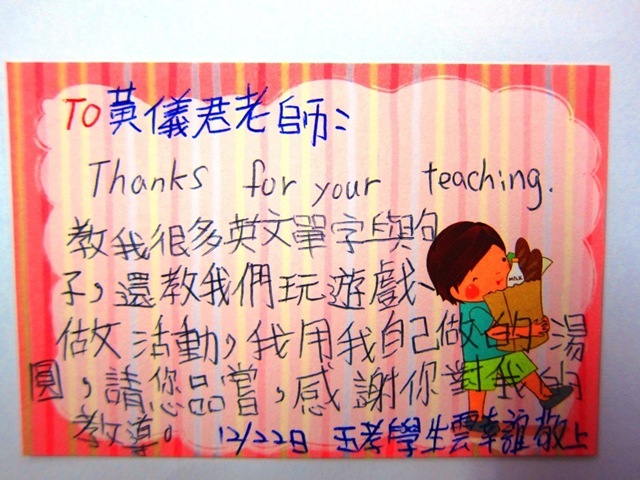 TO 黃儀君老師:
Thanks for your teaching.
教我很多英文單字與句
子,還教我們玩遊戲、
做活動,我用我自己做的湯
圓,請您品嘗,感謝你對我的
教導。
12/22日 五孝學生雲 敬上
MILK